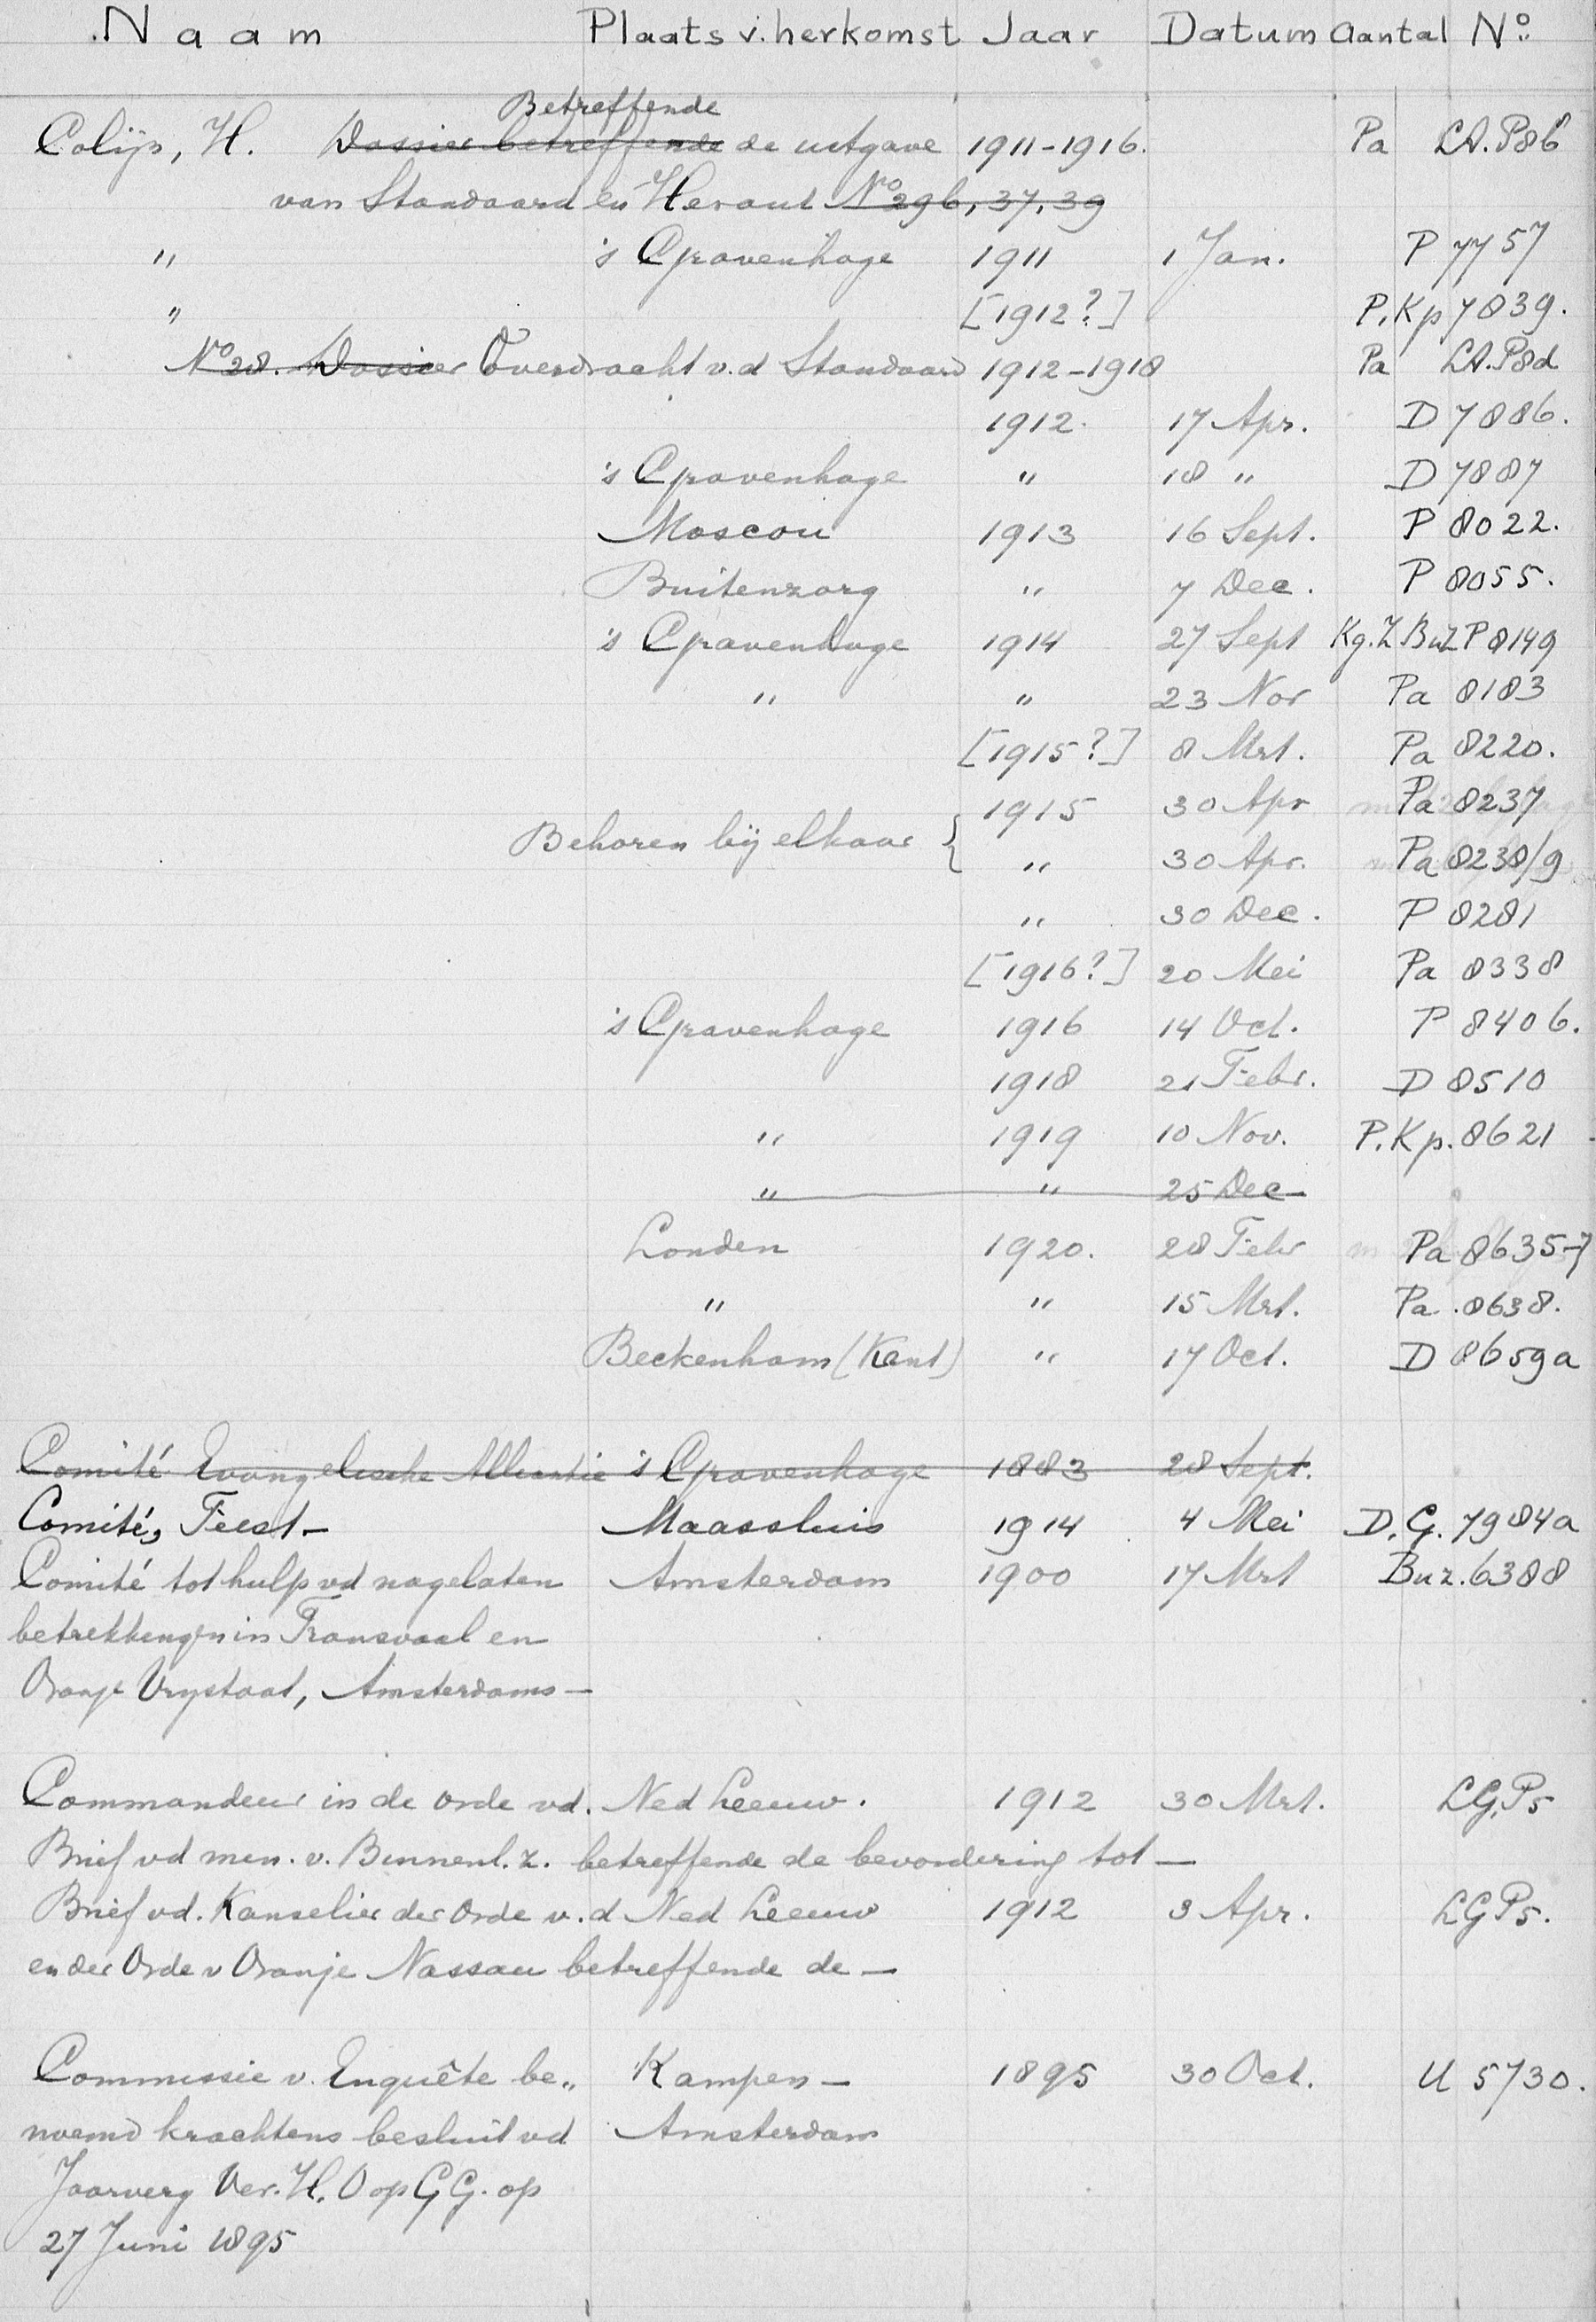 Naam Plaats v. herkomst Jaar Datum Aantal No.
Betreffende
Colijn, H. Dossier betreffende de uitgave 1911-1916. Pa LA.P8b
van Standaard en Heraut No 29b, 37, 39
" 's Gravenhage 1911 1 Jan. P 7757
" [1912?] P.Kp 7839.
No 28. Dossier Overdracht v.d Standaard 1912-1918 Pa LA.P8d
1912. 17 Apr. D 7886.
's Gravenhage " 18 " D 7887
Moscou 1913 16 Sept. P 8022.
Buitenzorg " 7 Dec. P 8055.
's Gravenhage 1914 27 Sept Kg.Z BuZ P 8149
" " 23 Nov Pa 8183
[1915?] 8 Mrt. Pa 8220.
1915 30 Apr Pa 8237
Behoren bij elkaar { " 30 Apr. Pa 8238/9
" 30 Dec. P 8281
[1916?] 20 Mei Pa 8338
's Gravenhage 1916 14 Oct. P 8406.
1918 21 Febr. D 8510
" 1919 10 Nov. P.Kp. 8621
" " 25 Dec
Londen 1920. 28 Febr Pa 8635-7
" " 15 Mrt. Pa. 8638.
Beckenham (Kent) " 17 Oct. D 8659a
Comité Evangelische Alliantie 's Gravenhage 1883 28 Sept.
Comité, Feest- Maassluis 1914 4 Mei D.G. 7984a
Comité tot hulp vd nagelaten Amsterdam 1900 17 Mrt Buz. 6388
betrekkingen in Transvaal en
Oranje Vrystaat, Amsterdams-
Commandeur in de orde vd. Ned Leeuw. 1912 30 Mrt. LG.P5
Brief vd min. v. Binnenl. z. betreffende de bevordering tot -
Brief vd. Kanselier der Orde v.d Ned Leeuw 1912 3 Apr. LGP5.
en der Orde v Oranje Nassau betreffende de -
Commissie v. Enquête be„ Kampen - 1895 30 Oct. U 5730.
noemd krachtens besluit vd Amsterdam
Jaarverg Ver. H. O op G G. op
27 Juni 1895